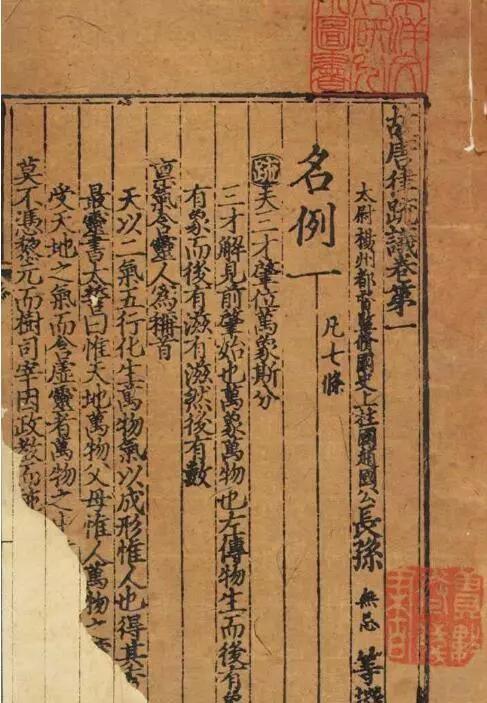 故唐律疏議卷第一
太尉揚州都督監修國史上柱國趙國公長孫無忌等撰
名例一 凡七條
疏夫三才肇位萬象斯分
三才解見前肇始也萬象萬物也左傳物生而後有象
有象而後有滋有滋然後有數
稟氣含靈人為稱首
天以二氣五行化生萬物氣以成形惟人也得其秀
最靈書太誓曰惟天地萬物父母惟人萬物之
受天地之氣而含虛靈者萬物之
莫不憑黎元而樹司宰因政教而